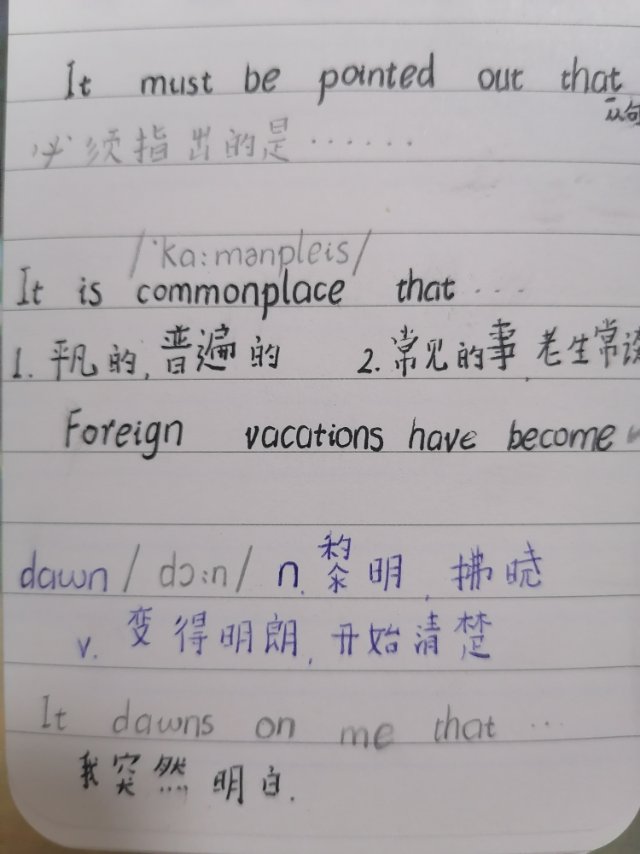 It must be pointed out that
从句
必须指出的是······
/ˈka:mənpleis/
It is commonplace that ···
1. 平凡的,普遍的 2. 常见的事,老生常谈
Foreign vacations have become
dawn /dɔ:n/ n. 黎明,拂晓
v. 变得明朗,开始清楚
It dawns on me that ···
我突然明白.